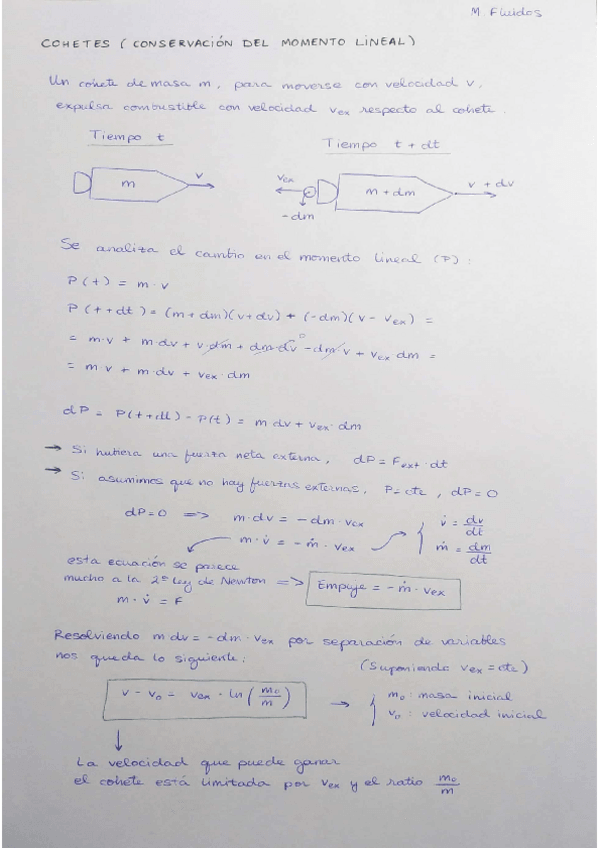 M. Fluidos
COHETES (CONSERVACIÓN DEL MOMENTO LINEAL)
Un cohete de masa m, para moverse con velocidad v,
expulsa combustible con velocidad vex respecto al cohete.
Tiempo t
Tiempo t + dt
m
v
vex
m + dm
v + dv
- dm
Se analiza el cambio en el momento lineal (P):
P(t) = m · v
P(t+dt) = (m+dm)(v+dv) + (-dm)(v - vex) =
= m·v + m dv + v·dm + dm·dv⁰ - dm·v + vex dm =
= m·v + m·dv + vex·dm
dP = P(t+dt) - P(t) = m dv + vex·dm
→ Si hubiera una fuerza neta externa, dP = Fext · dt
→ Si asumimos que no hay fuerzas externas, P = cte, dP = 0
dP = 0 => m·dv = - dm·vex
m·v̇ = - ṁ · vex
v̇ = dv/dt
ṁ = dm/dt
esta ecuación se parece
mucho a la 2ª ley de Newton => Empuje = - ṁ · vex
m · v̇ = F
Resolviendo m dv = - dm · vex por separación de variables
nos queda lo siguiente: (Suponiendo vex = cte)
v - v₀ = vex · ln(m₀/m) →
m₀: masa inicial
v₀: velocidad inicial
La velocidad que puede ganar
el cohete está limitada por vex y el ratio m₀/m